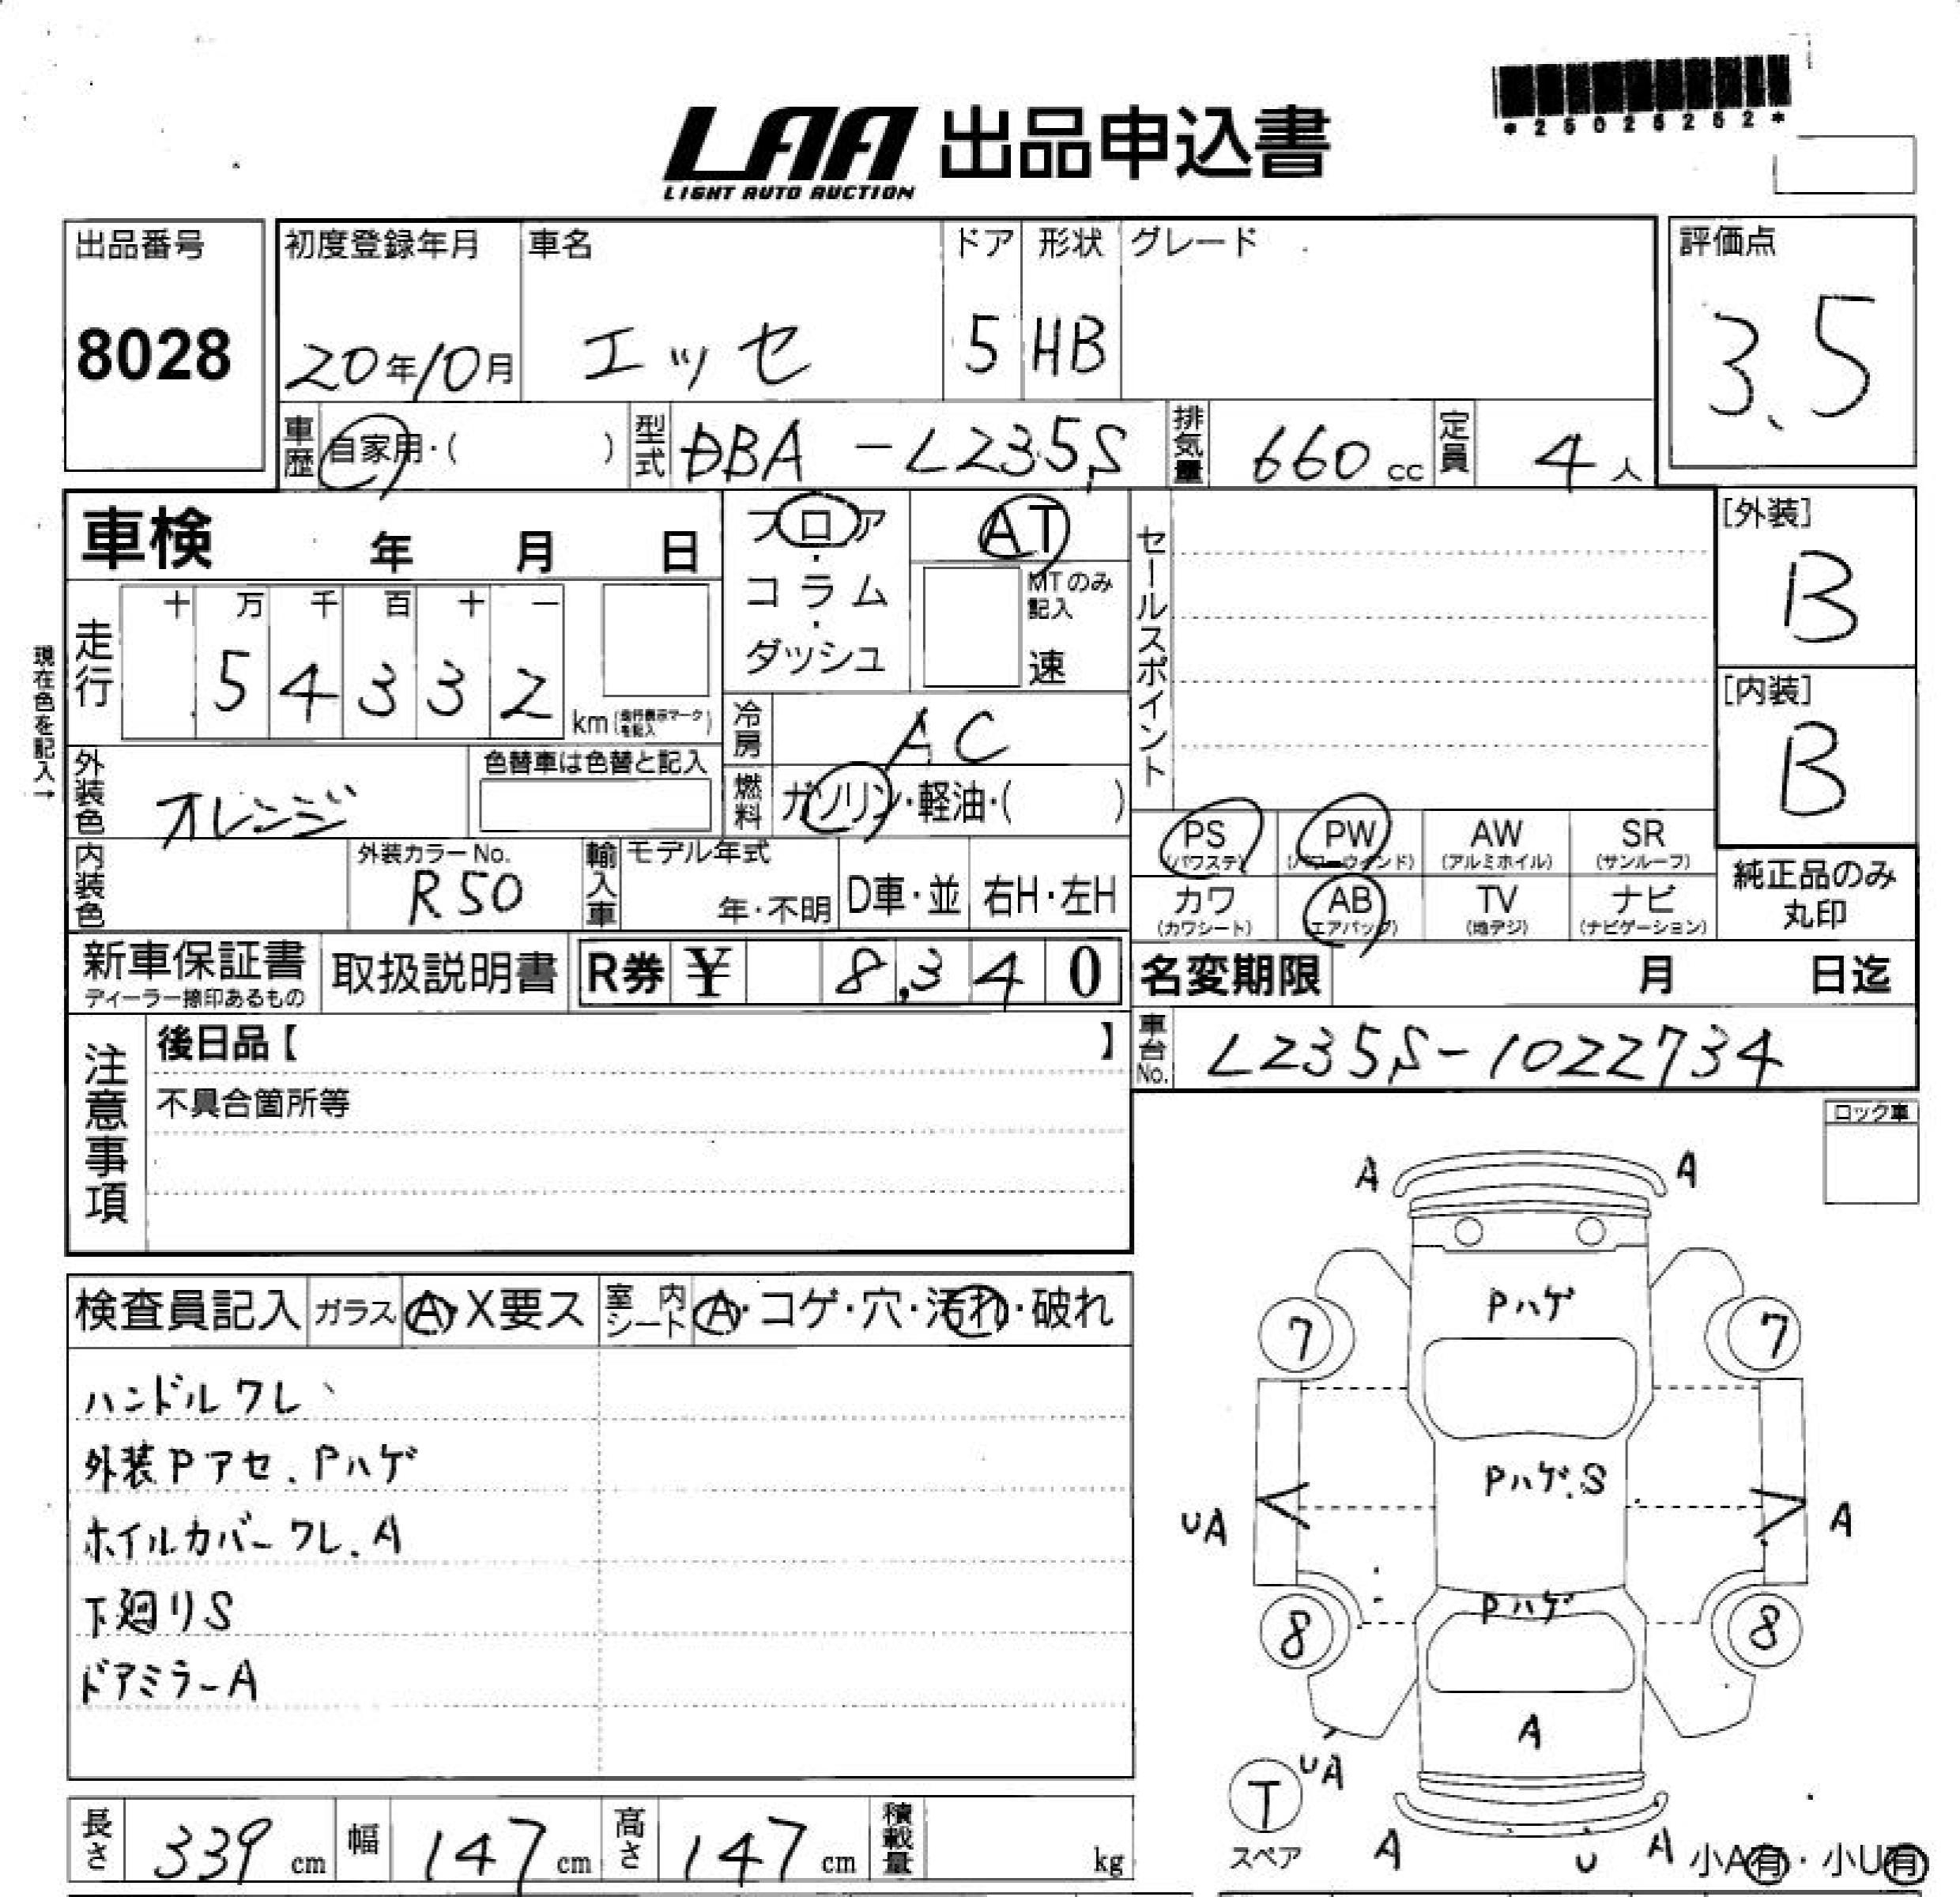 *25026262*
LAA 出品申込書
LIGHT AUTO AUCTION
出品番号 8028
初度登録年月 20年10月
車名 エッセ
ドア 5
形状 HB
グレード
評価点 3.5
車歴 自家用・( )
型式 DBA-L235S
排気量 660cc
定員 4人
車検 年 月 日
フロア・コラム・ダッシュ
AT
MTのみ記入 速
セールスポイント
[外装] B
現在色を記入→
走行 十 万 千 百 十 一
54332 km (走行表示マークを記入)
[内装] B
冷房 AC
外装色 オレンジ
色替車は色替と記入
燃料 ガソリン・軽油・( )
PS (パワステ)
PW (パワーウインド)
AW (アルミホイル)
SR (サンルーフ)
内装色
外装カラーNo. R50
輸入車 モデル年式 年・不明
D車・並
右H・左H
カワ (カワシート)
AB (エアバッグ)
TV (地デジ)
ナビ (ナビゲーション)
純正品のみ丸印
新車保証書
ディーラー捺印あるもの
取扱説明書
R券 ¥ 8,340
名変期限 月 日迄
注意事項
後日品【 】
不具合箇所等
車台No. L235S-1022734
ロック車
A A
Pハゲ
7 7
Pハゲ.S
UA A
Pハゲ
8 8
A
UA
T
スペア
A U A
小A有・小U有
検査員記入
ガラス A・X要ス
室内シート A・コゲ・穴・汚れ・破れ
ハンドルワレ
外装Pアセ、Pハゲ
ホイルカバーワレ、A
下廻りS
ドアミラーA
長さ 339cm
幅 147cm
高さ 147cm
積載量 kg